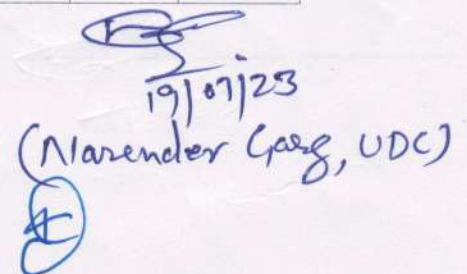 19/07/23
(Narender Garg, UDC)